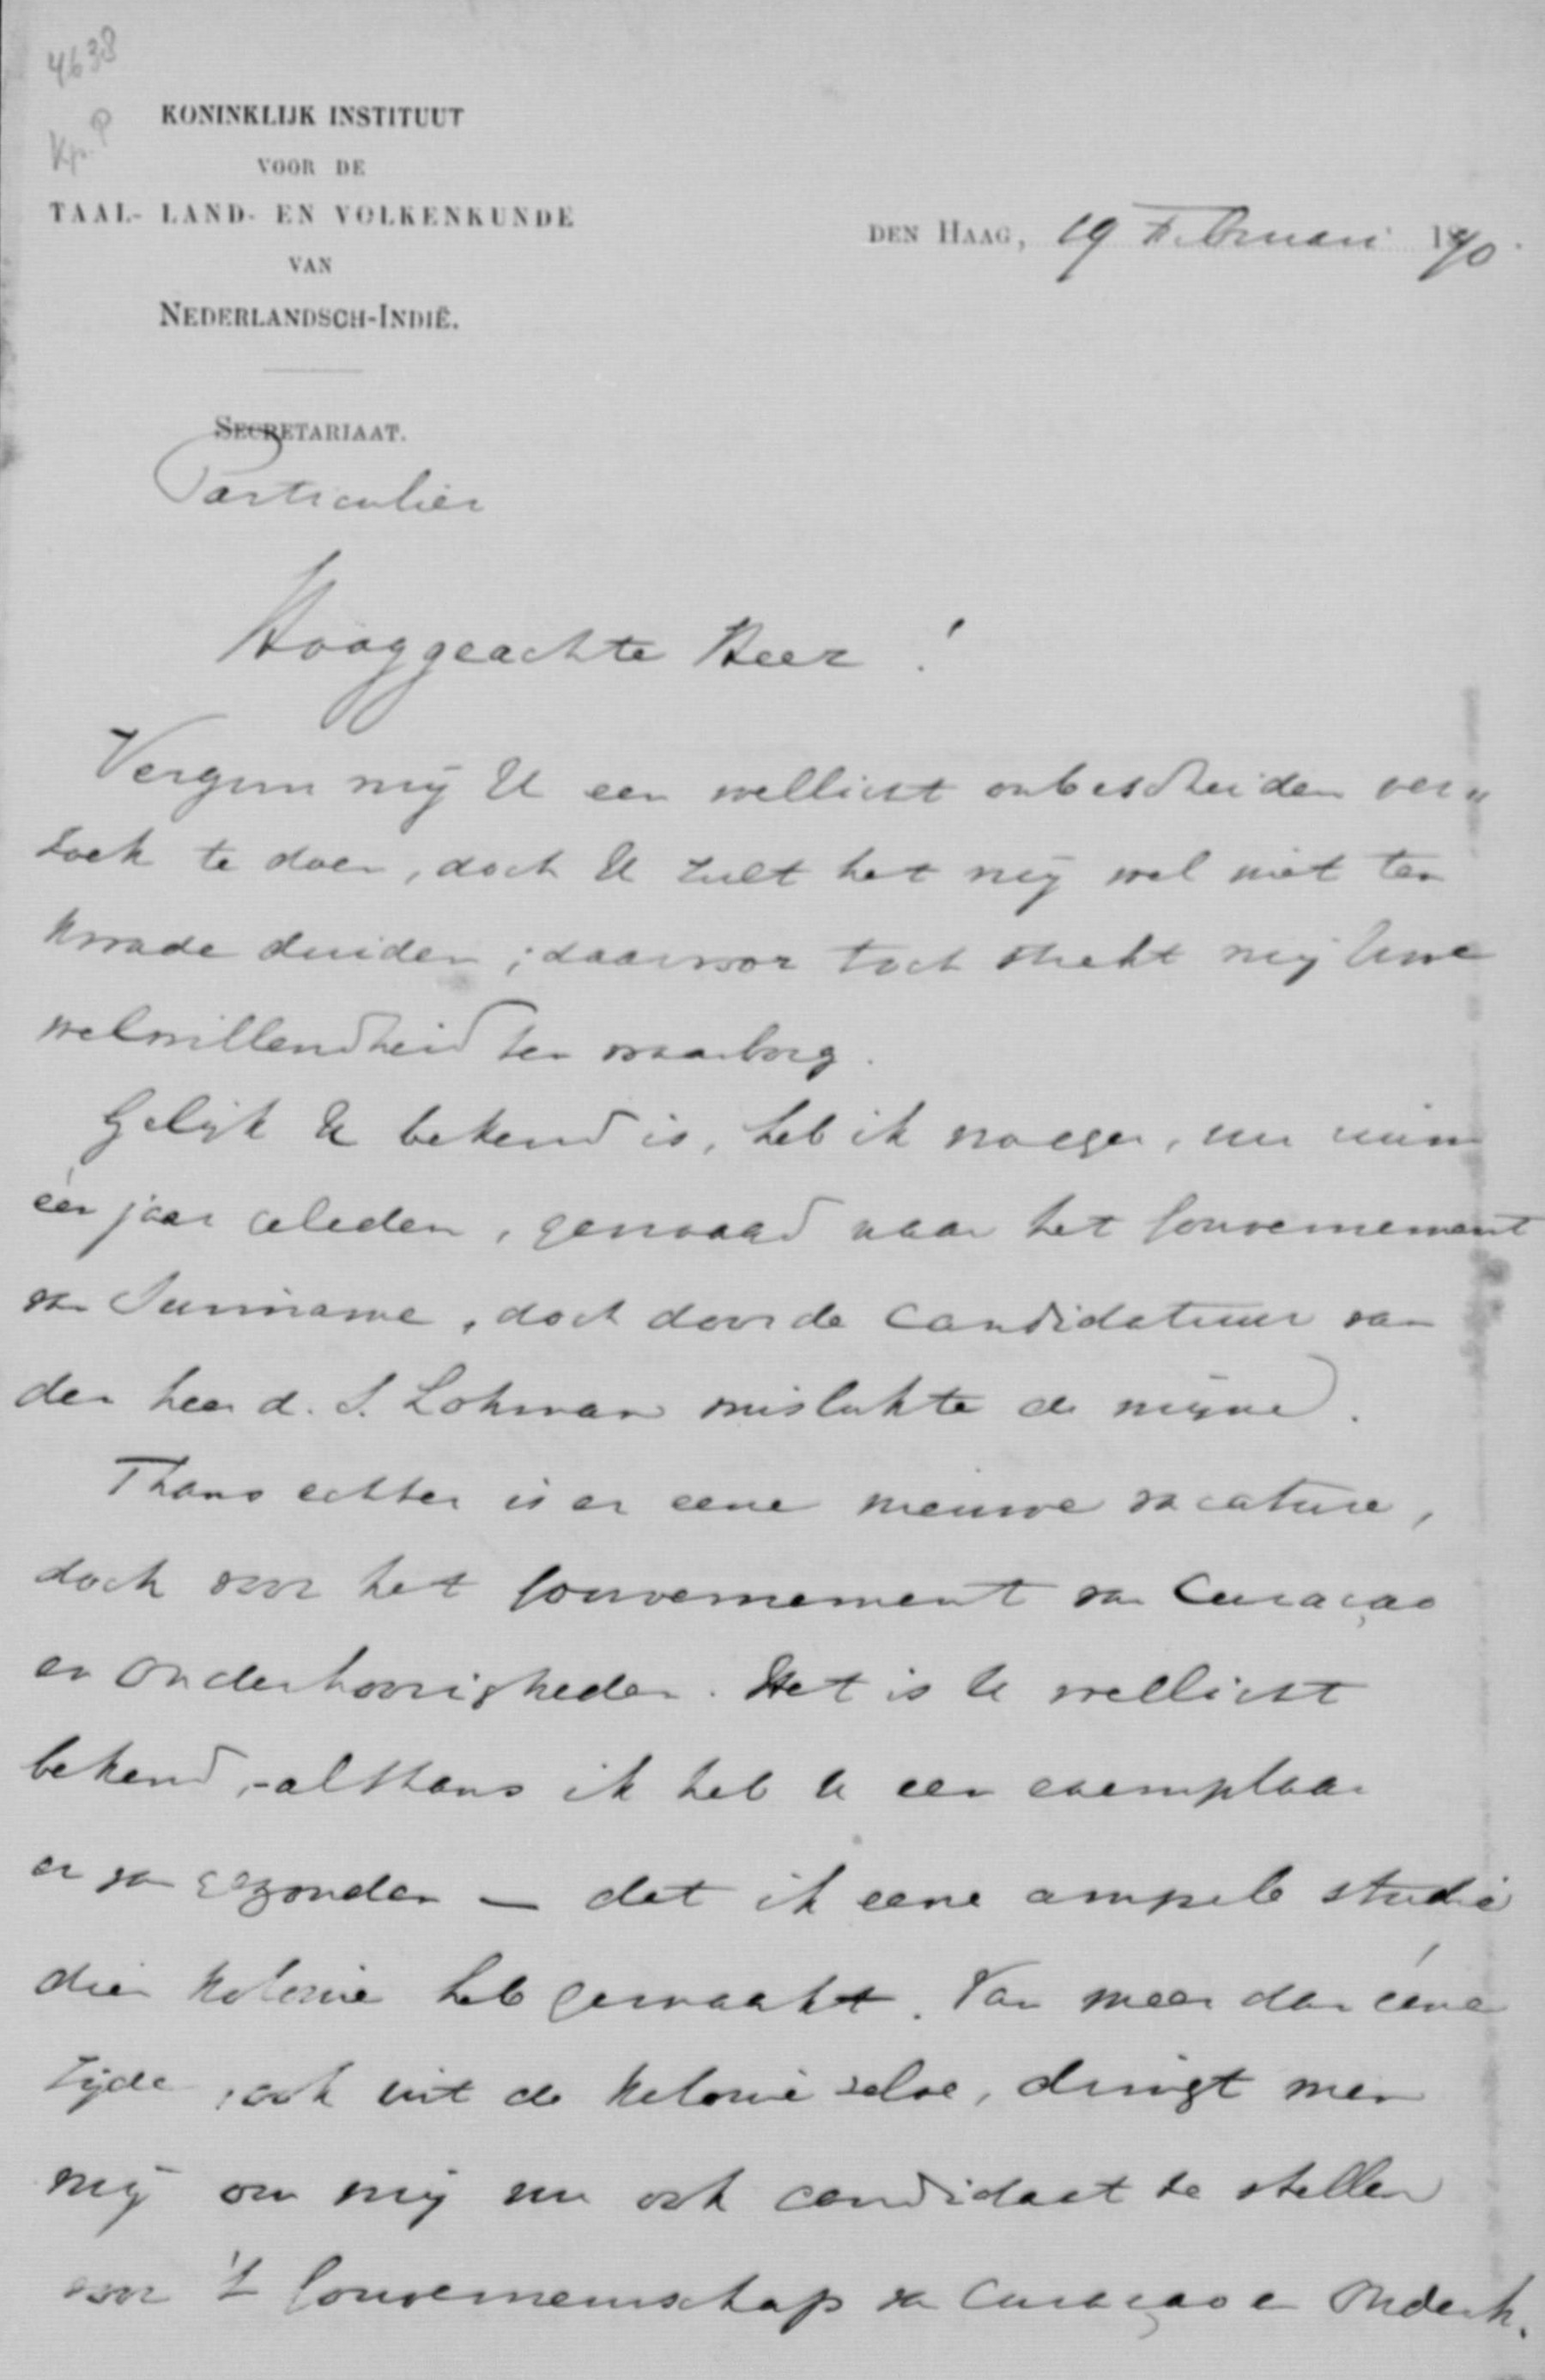 4638
Kp. P
KONINKLIJK INSTITUUT
VOOR DE
TAAL- LAND- EN VOLKENKUNDE
VAN
NEDERLANDSCH-INDIË.
DEN HAAG, 19 Februari 1890.
SECRETARIAAT.
Particulier
Hooggeachte Heer!
Vergun mij U een wellicht onbescheiden ver„
zoek te doen, doch U zult het mij wel niet ten
kwade duiden; daarvoor toch strekt mij Uwe
welwillendheid ten waarborg.
Gelijk U bekend is, heb ik vroeger, nu ruim
één jaar geleden, gevraagd naar het Gouvernement
van Suriname, doch door de candidatuur van
den heer d. S. Lohman mislukte de mijne.
Thans echter is er eene nieuwe vacature,
doch voor het Gouvernement van Curaçao
en Onderhoorigheden. Het is U wellicht
bekend, - althans ik heb U een exemplaar
er van gezonden — dat ik eene ampele studie
dier kolonie heb gemaakt. Van meer dan ééne
zijde, ook uit de kolonie zelve, dringt men
mij om mij nu ook candidaat te stellen
voor 't Gouverneurschap van Curaçao en Onderh.